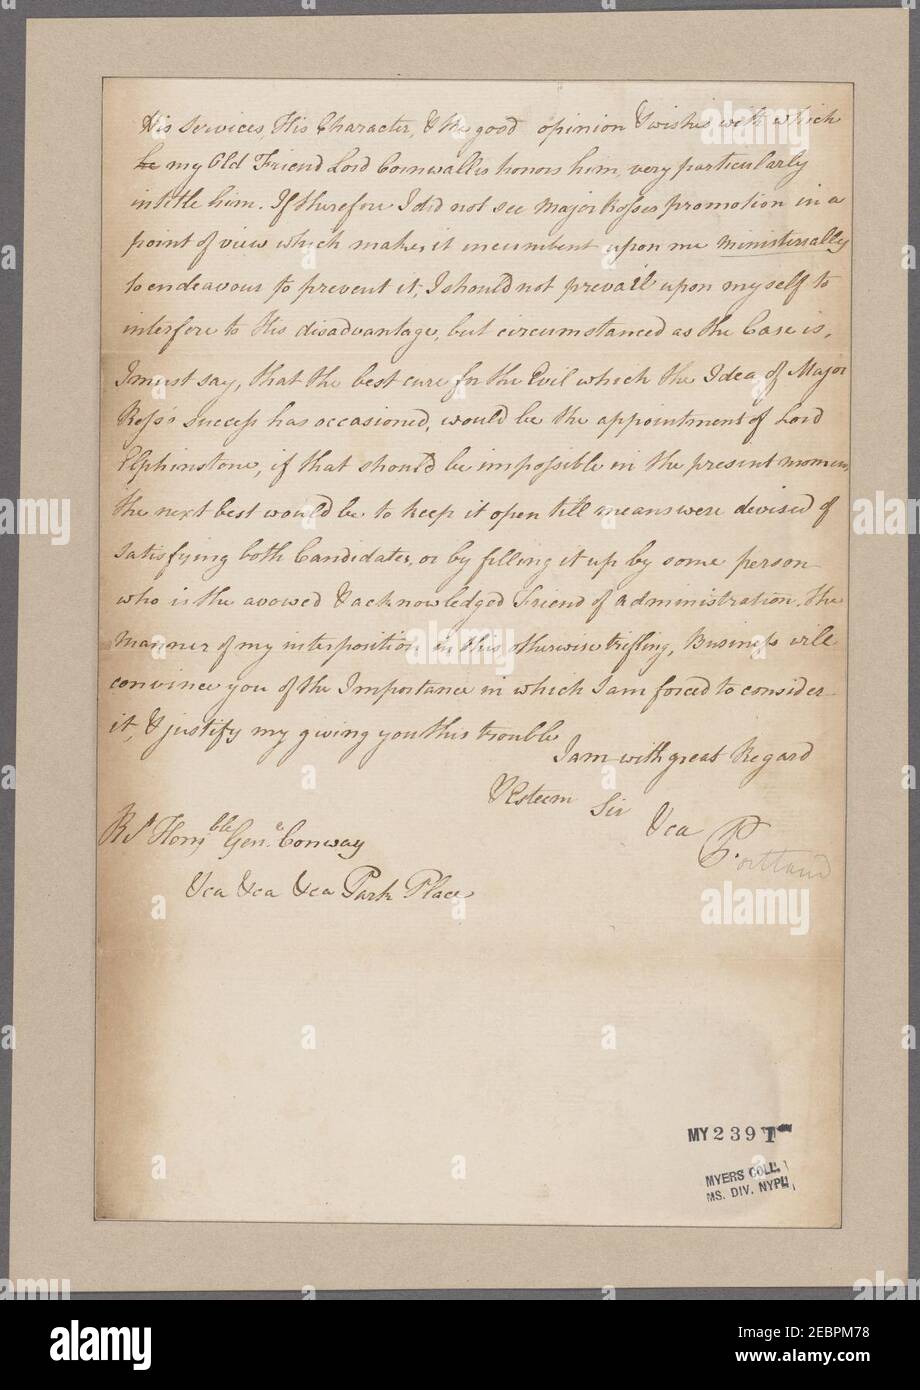 His Services, His Character, & the good opinion & wishes with which
he my Old Friend Lord Cornwallis honors him, very particularly
intitle him. If therefore I did not see Major Rosses promotion in a
point of view which makes it incumbent upon me ministerially
to endeavour to prevent it, I should not prevail upon myself to
interfere to His disadvantage, but circumstanced as the Case is,
I must say, that the best cure for the Evil which the Idea of Major
Ross's success has occasioned, would be the appointment of Lord
Elphinstone, if that should be impossible in the present moment,
the next best would be to keep it open till means were devised of
satisfying both Candidates, or by filling it up by some person
who is the avowed & acknowledged Friend of Administration. The
manner of my interposition in this otherwise trifling, Business will
convince you of the Importance in which I am forced to consider
it, & justify my giving you this trouble
I am with great Regard
& Esteem Sir &ca
Portland
Rt. Honble Genl. Conway
&ca &ca &ca Park Place
MY 2391
MYERS COLL.
MS. DIV. NYPL
alamy
Image ID: 2EBPM78
www.alamy.com